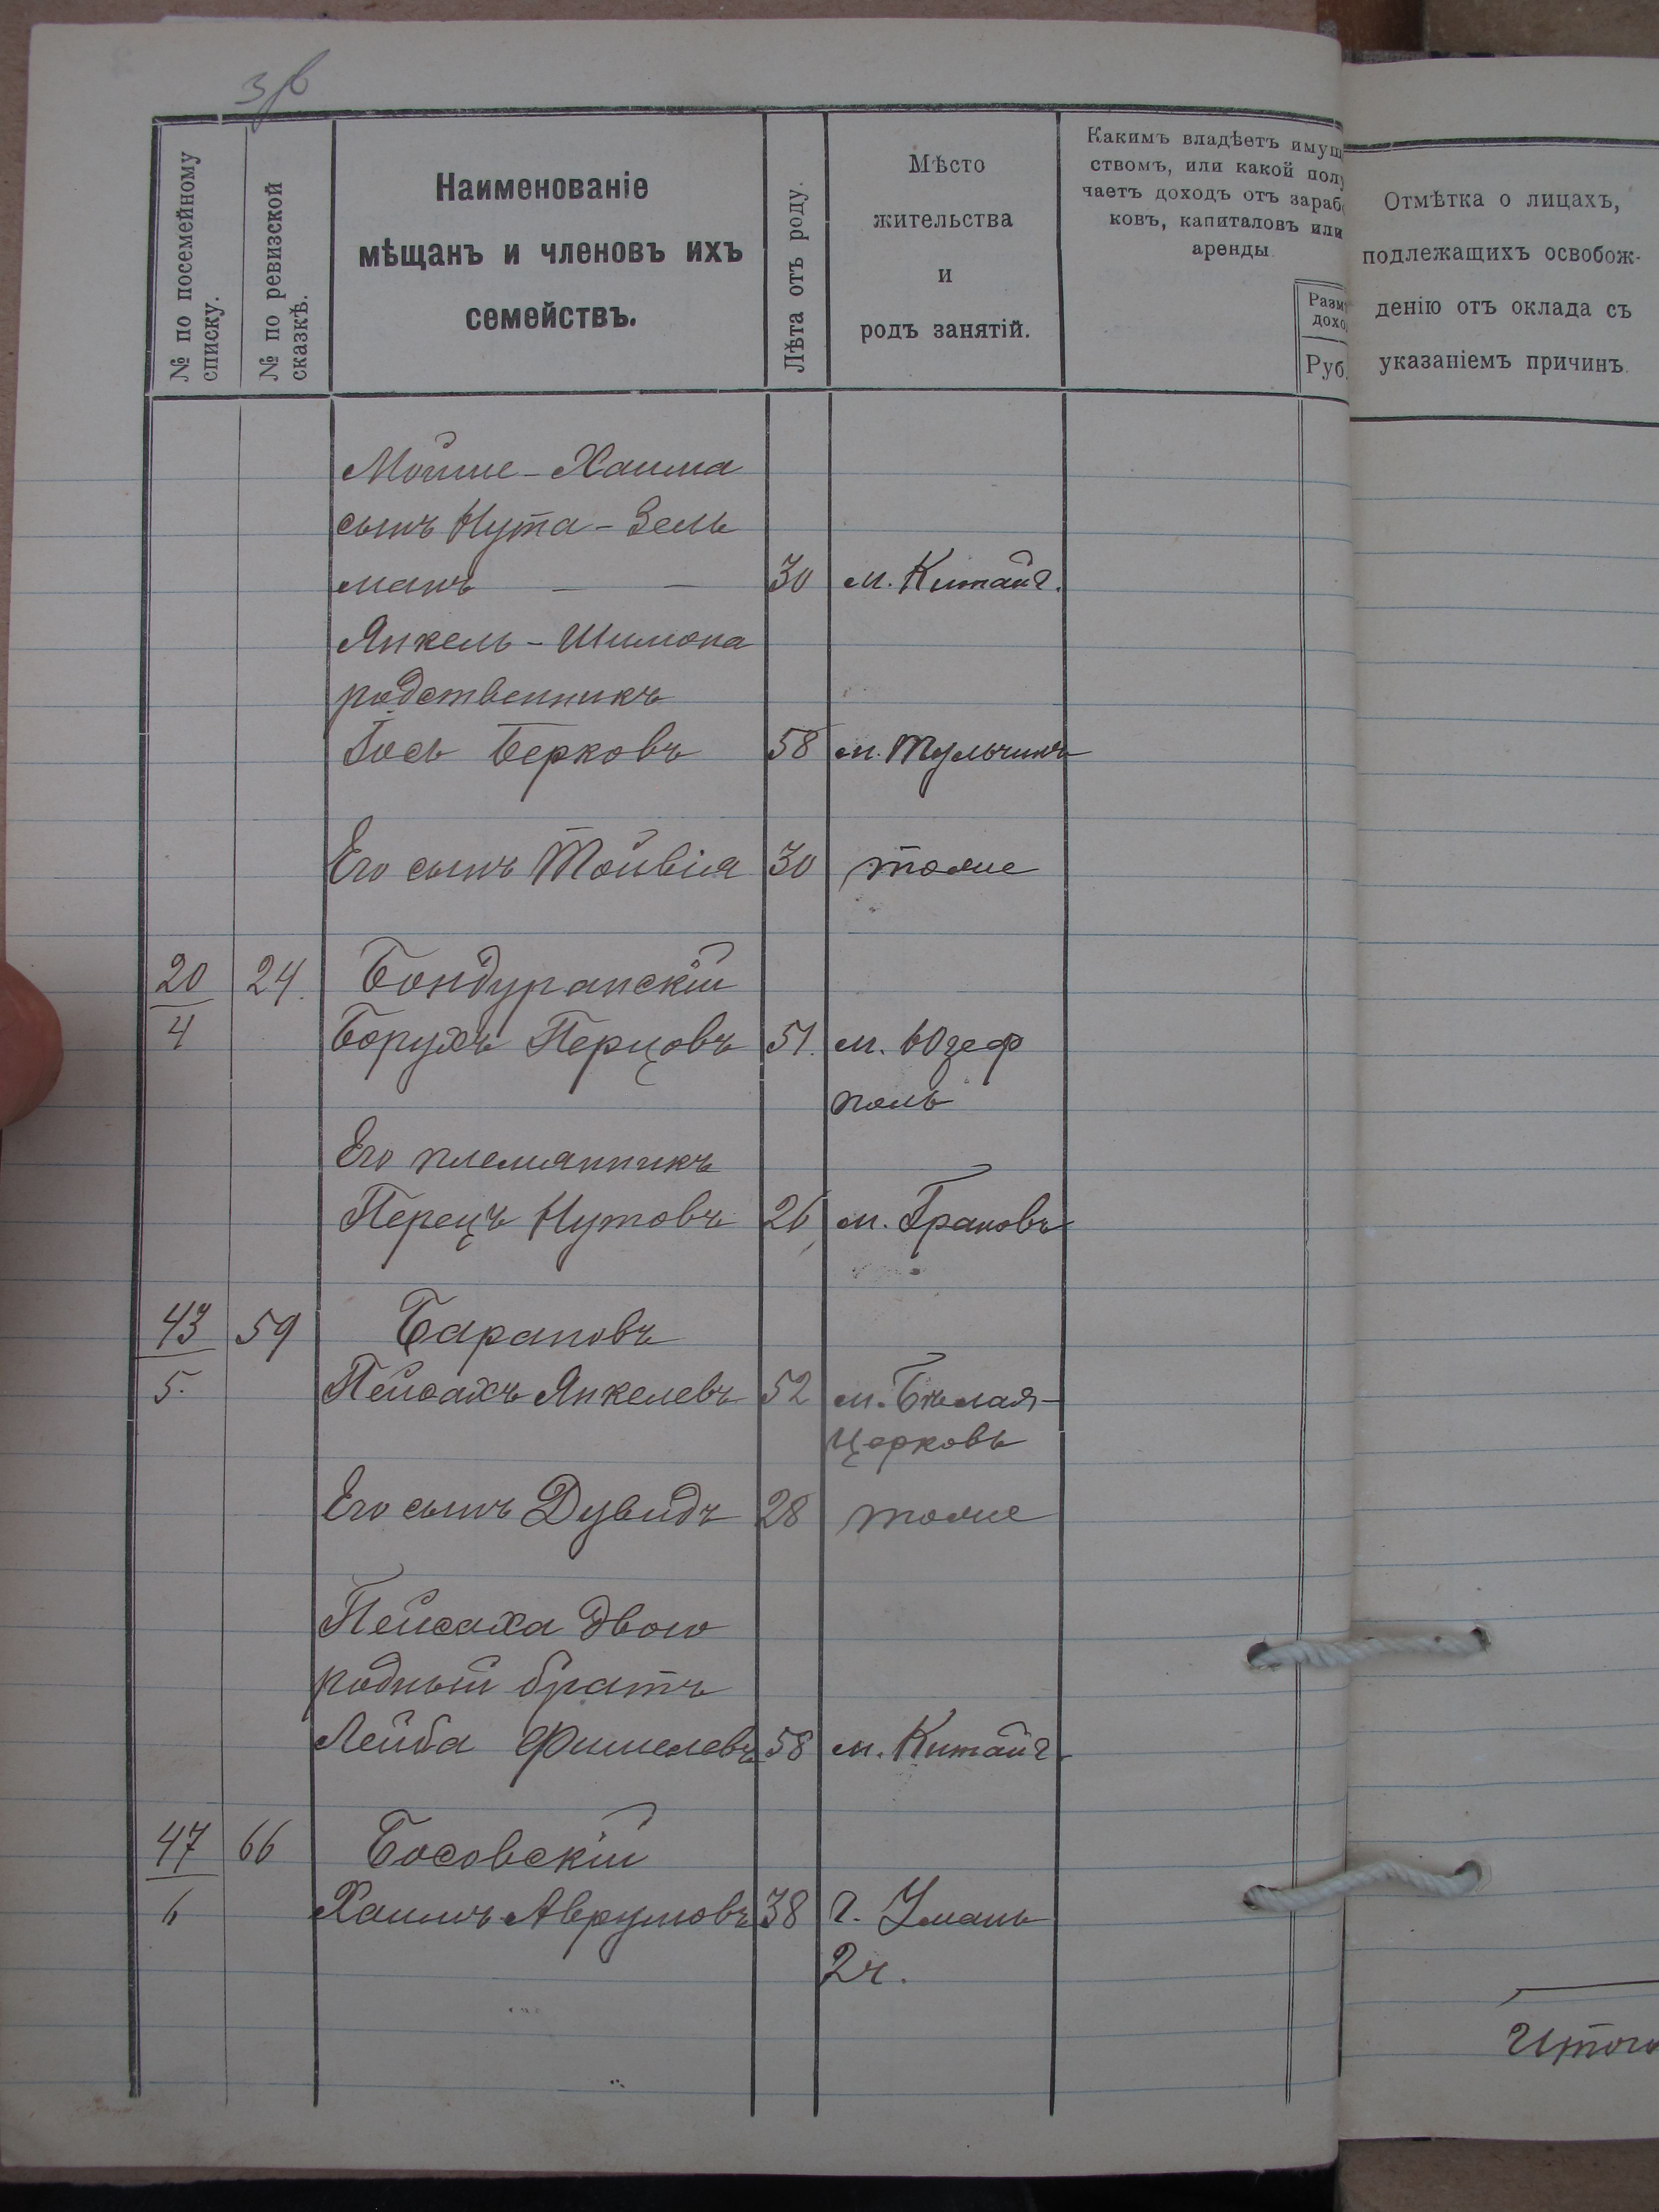 № по посемейному
списку.
№ по ревизской
сказкѣ.
Наименованіе
мѣщанъ и членовъ ихъ
семействъ.
Лѣта отъ роду.
Мѣсто
жительства
и
родъ занятій.
Какимъ владѣетъ имущ
ствомъ, или какой полу
чаетъ доходъ отъ зараб
ковъ, капиталовъ или
аренды
Разм
дохо
Руб.
Отмѣтка о лицахъ,
подлежащихъ освобож-
денію отъ оклада съ
указаніемъ причинъ.
Мойше-Хаима
сынъ Нута-Зель
манъ — — 30 м. Китайг.
Янкель-Шимона
родственникъ
Іось Берковъ 58 м. Тульчинъ
Его сынъ Тойвія 30 тоже
20 24. Бондуранскій
4 Борухъ Перцовъ 51. м. Юзеф
поль
Его племянникъ
Перецъ Нутовъ 26 м. Грановъ
43 59 Барановъ
5. Пейсахъ Янкелевъ 52 м. Бѣлая-
Церковь
Его сынъ Дувидъ 28 тоже
Пейсаха двою
родный братъ
Лейба Фишелевъ 58 м. Китайг.
47 66 Босовскій
6 Хаимъ Аврумовъ 38 г. Умань
2ч.
Итого